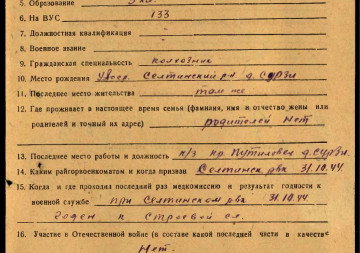 5. Образование
6. На ВУС 133
7. Должностная квалификация
8. Военное звание
9. Гражданская специальность колхозник
10. Место рождения Удасср. Селтинский р-н д. Сурзи
11. Последнее место жительства там же
12. Где проживает в настоящее время семья (фамилия, имя и отчество жены или
родителей и точный их адрес) родителей нет
13. Последнее место работы и должность к/з кр. Путиловец д. Сурзи.
14. Каким райгорвоенкоматом и когда призван Селтинск. рвк 31.10.44
15. Когда и где проходил последний раз медкомиссию и результат годности к
военной службе при Селтинском рвк 31.10.44
годен к строевой сл.
16. Участие в Отечественной войне (в составе какой последней части в качестве
Нет.